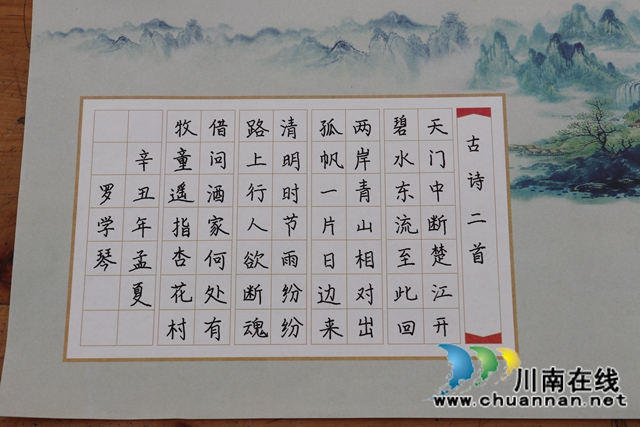 古诗二首
天门中断楚江开
碧水东流至此回
两岸青山相对出
孤帆一片日边来
清明时节雨纷纷
路上行人欲断魂
借问酒家何处有
牧童遥指杏花村
辛丑年孟夏
罗学琴
川南在线
www.chuannan.net